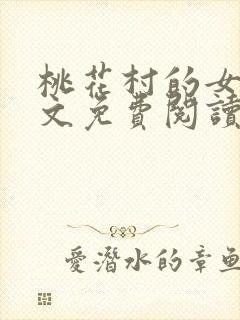 桃花村的女
文免費閱讀
愛潛水的章魚